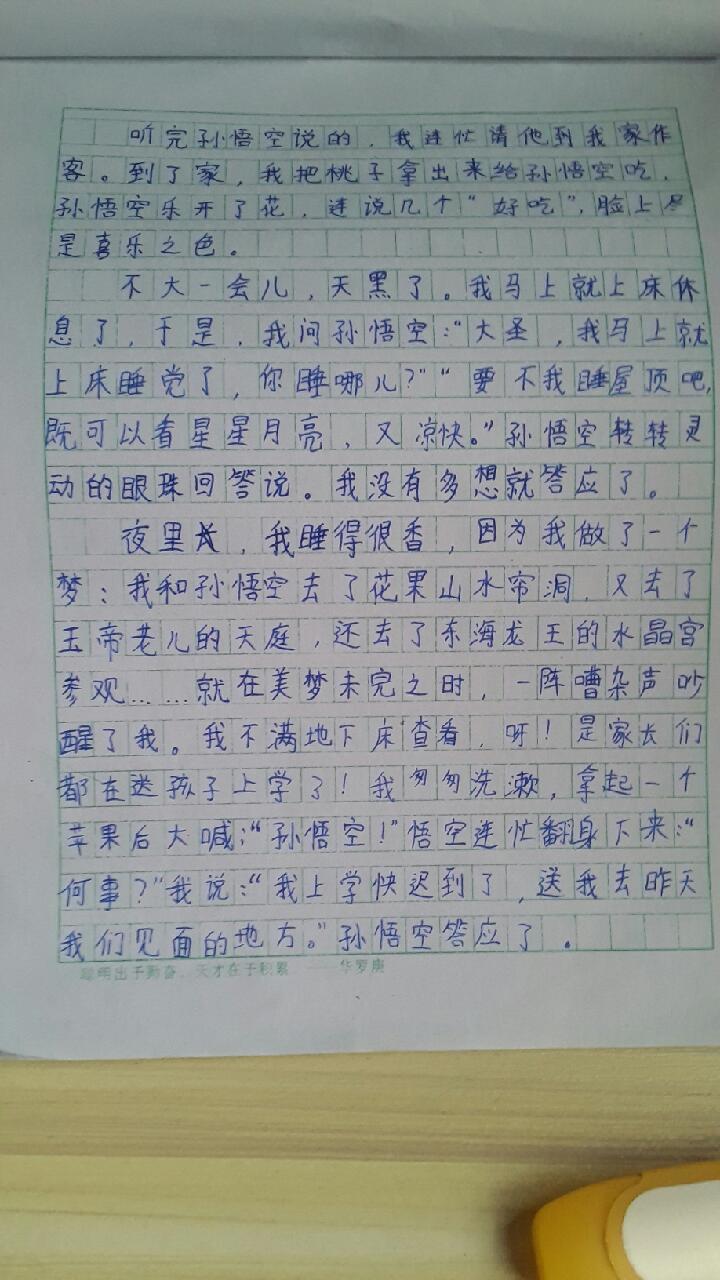 听完孙悟空说的，我连忙请他到我家作
客。到了家，我把桃子拿出来给孙悟空吃，
孙悟空乐开了花，连说几个“好吃”，脸上尽
是喜乐之色。
不大一会儿，天黑了。我马上就上床休
息了，于是，我问孙悟空：“大圣，我马上就
上床睡觉了，你睡哪儿？”“要不我睡屋顶吧，
既可以看星星月亮，又凉快。”孙悟空转转灵
动的眼珠回答说。我没有多想就答应了。
夜里，我睡得很香，因为我做了一个
梦：我和孙悟空去了花果山水帘洞，又去了
玉帝老儿的天庭，还去了东海龙王的水晶宫
参观……就在美梦未完之时，一阵嘈杂声吵
醒了我。我不满地下床查看，呀！是家长们
都在送孩子上学了！我匆匆洗漱，拿起一个
苹果后大喊：“孙悟空！”悟空连忙翻身下来：“
何事？”我说：“我上学快迟到了，送我去昨天
我们见面的地方。”孙悟空答应了。
聪明出于勤奋，天才在于积累 ——华罗庚